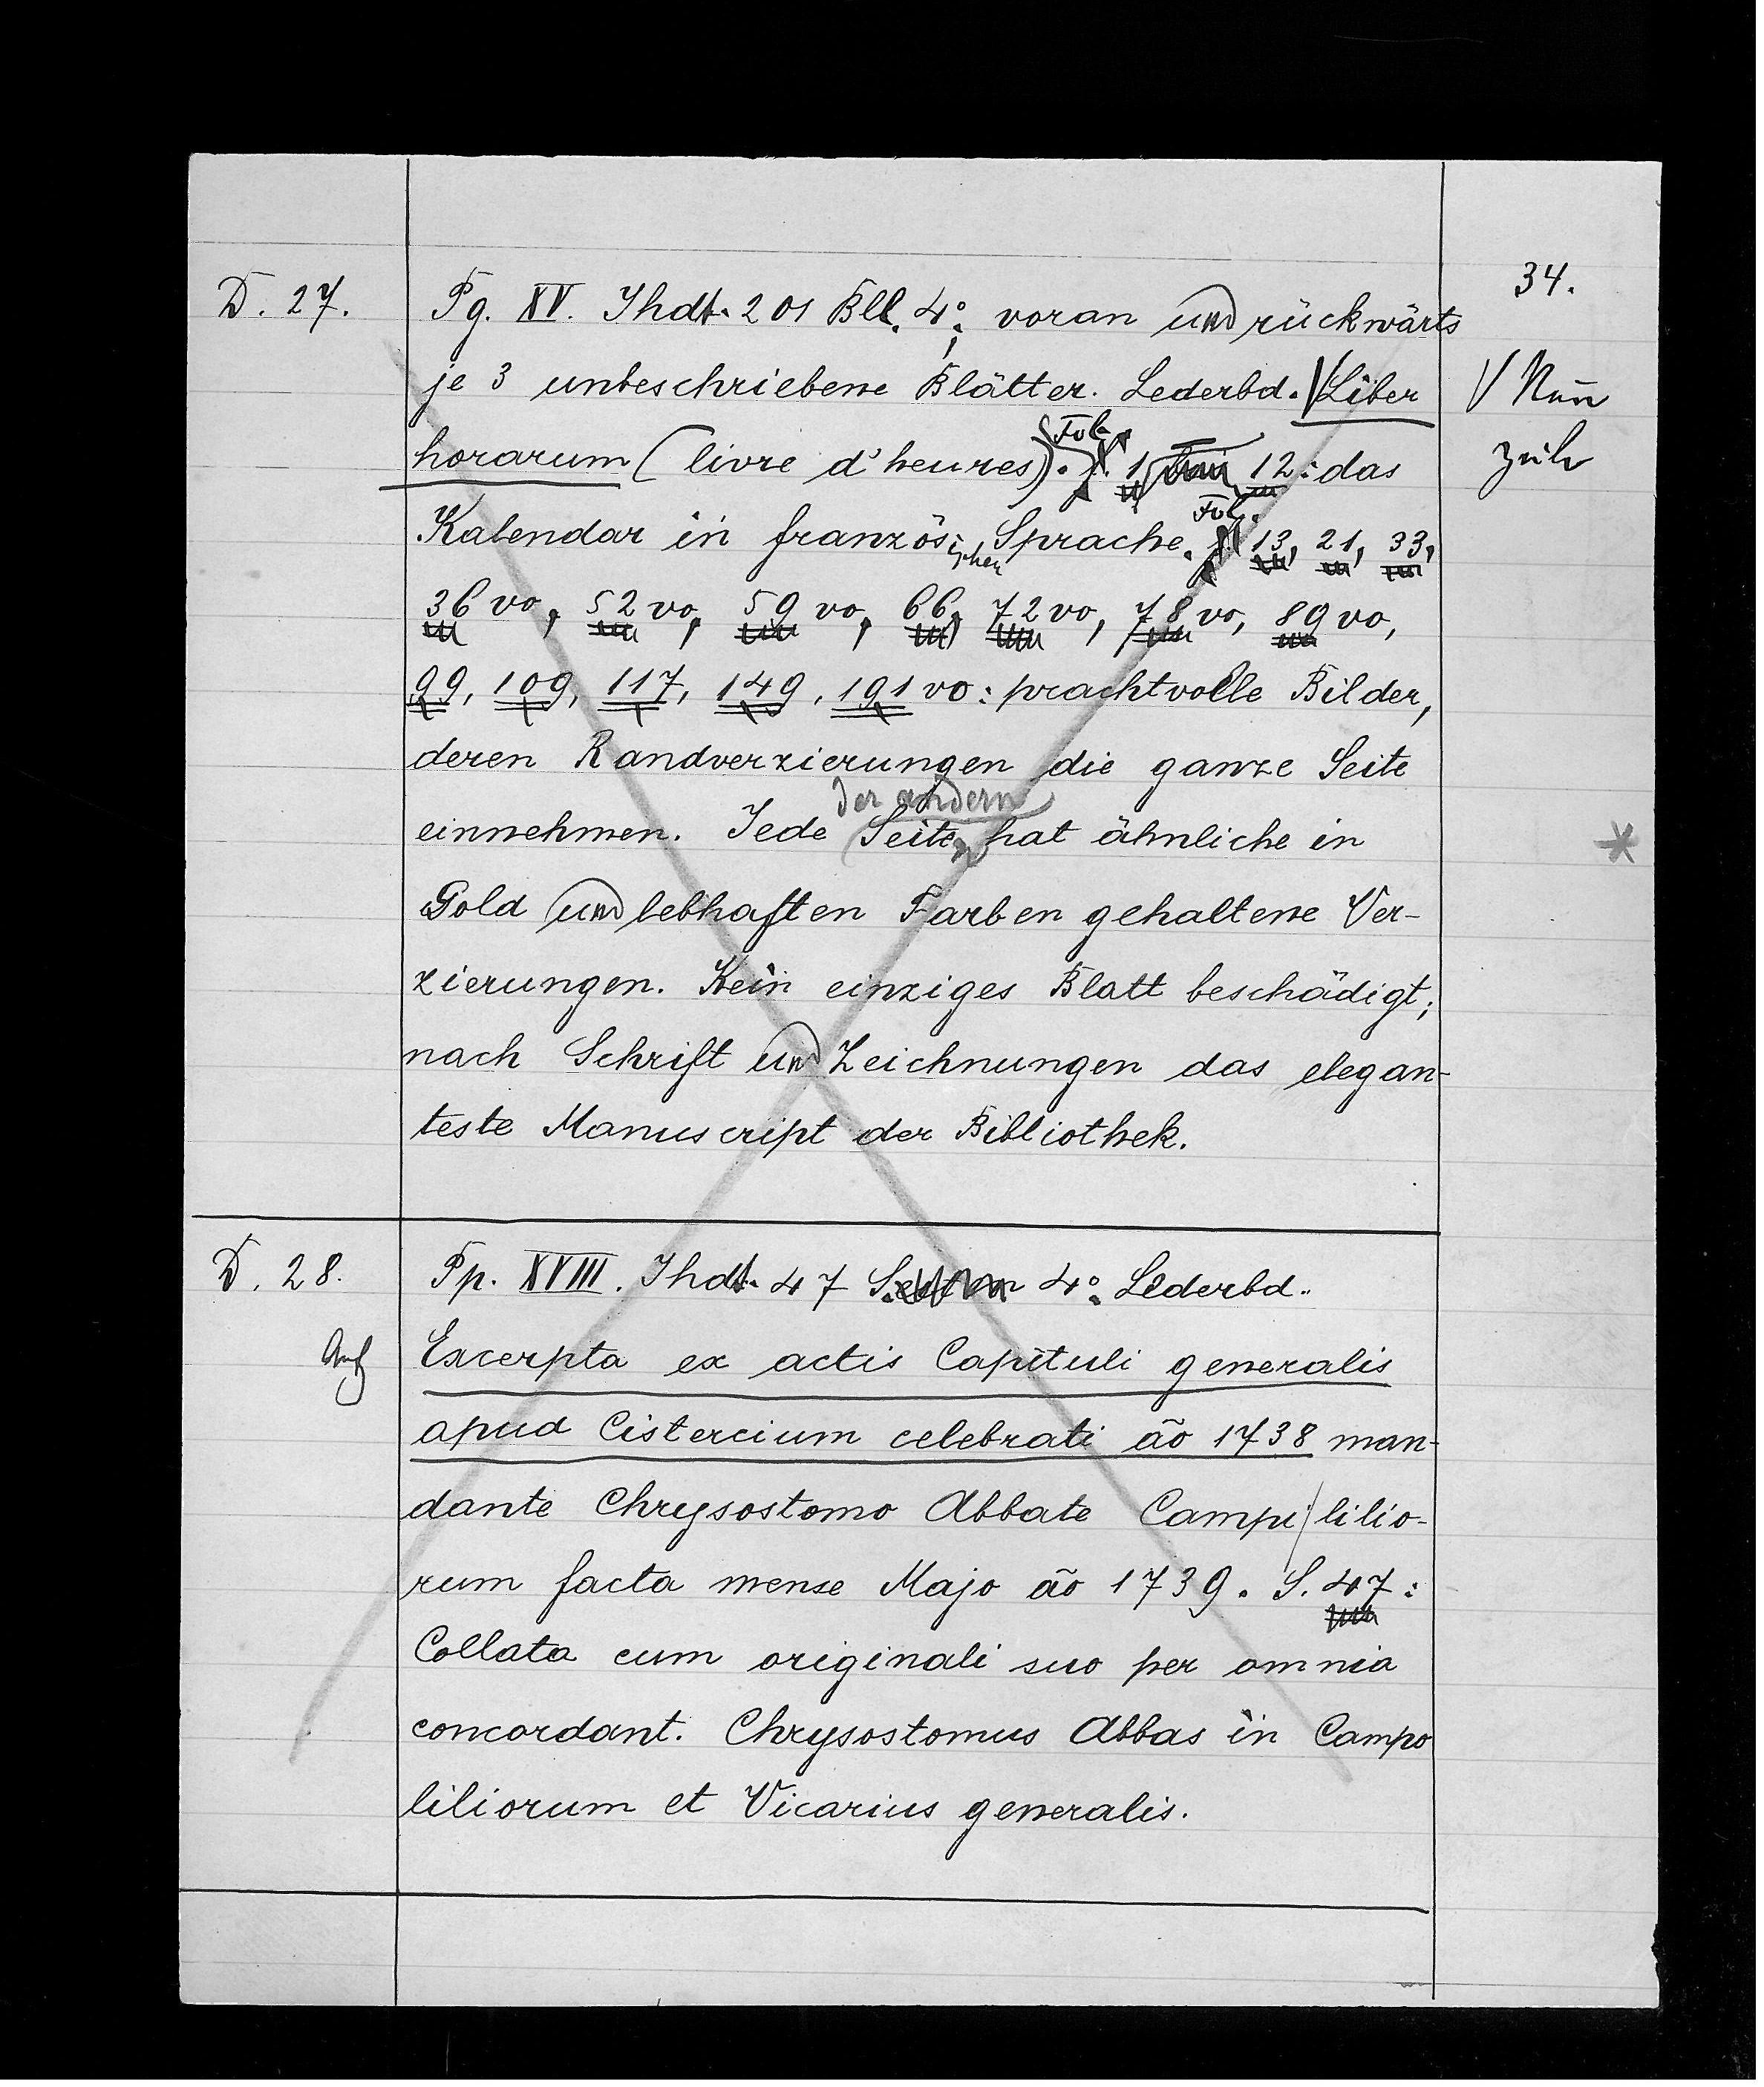 34.
D. 27. Pg. XV. Jhdt. 201 Bll. 4°; voran und rückwärts
je 3 unbeschriebene Blätter. Lederbd. Liber
horarum (livre d'heures). Fol. 1 12: das
Kalendar in französischer Sprache. Fol. 13, 21, 33,
36 vo, 52 vo, 59 vo, 66, 72 vo, 78 vo, 89 vo,
99, 109, 117, 149, 191 vo: prachtvolle Bilder,
deren Randverzierungen die ganze Seite
der andern
einnehmen. Jede Seite hat ähnliche in
Gold und lebhaften Farben gehaltene Ver-
zierungen. Kein einziges Blatt beschädigt;
nach Schrift und Zeichnungen das elegan-
teste Manuscript der Bibliothek.
D. 28. Pp. XVIII. Jhdt. 47 S. 4°. Lederbd.
Excerpta ex actis Capituli generalis
apud Cistercium celebrati ão 1738 man-
dante Chrysostomo Abbate Campi lilio-
rum facta mense Majo ão 1739. S. 47:
Collata cum originali suo per omnia
concordant. Chrysostomus Abbas in Campo
liliorum et Vicarius generalis.